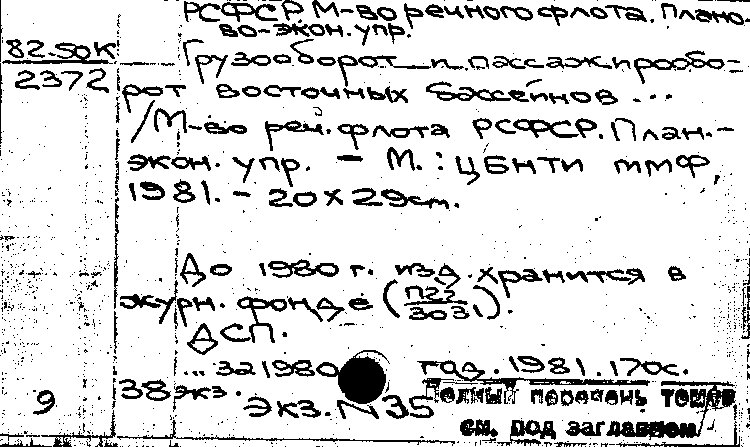 РСФСР М-во речного флота. Плано-
во-экон. упр.
82.50К
2372
Грузооборот и пассажирообо-
рот восточных бассейнов ...
/М-во реч. флота РСФСР. План.-
экон. упр. - М.: ЦБНТИ ММФ,
1981. - 20×29см.
До 1980 г. изд. хранится в
журн. фонде (П22/3031).
ДСП.
... за 1980 год. 1981. 170с.
38экз.
9
Экз. N35
Полный перечень томов
см. под заглавием